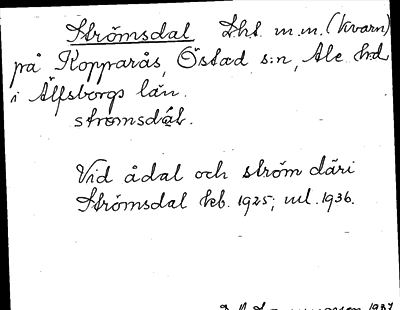 Strömsdal Lht. m.m. (Kvarn)
på Kopparås, Östad s:n, Ale hd
i Älfsborgs län.
strömsdál.
Vid ådal och ström däri
Strömsdal keb. 1925; url. 1936.
1937